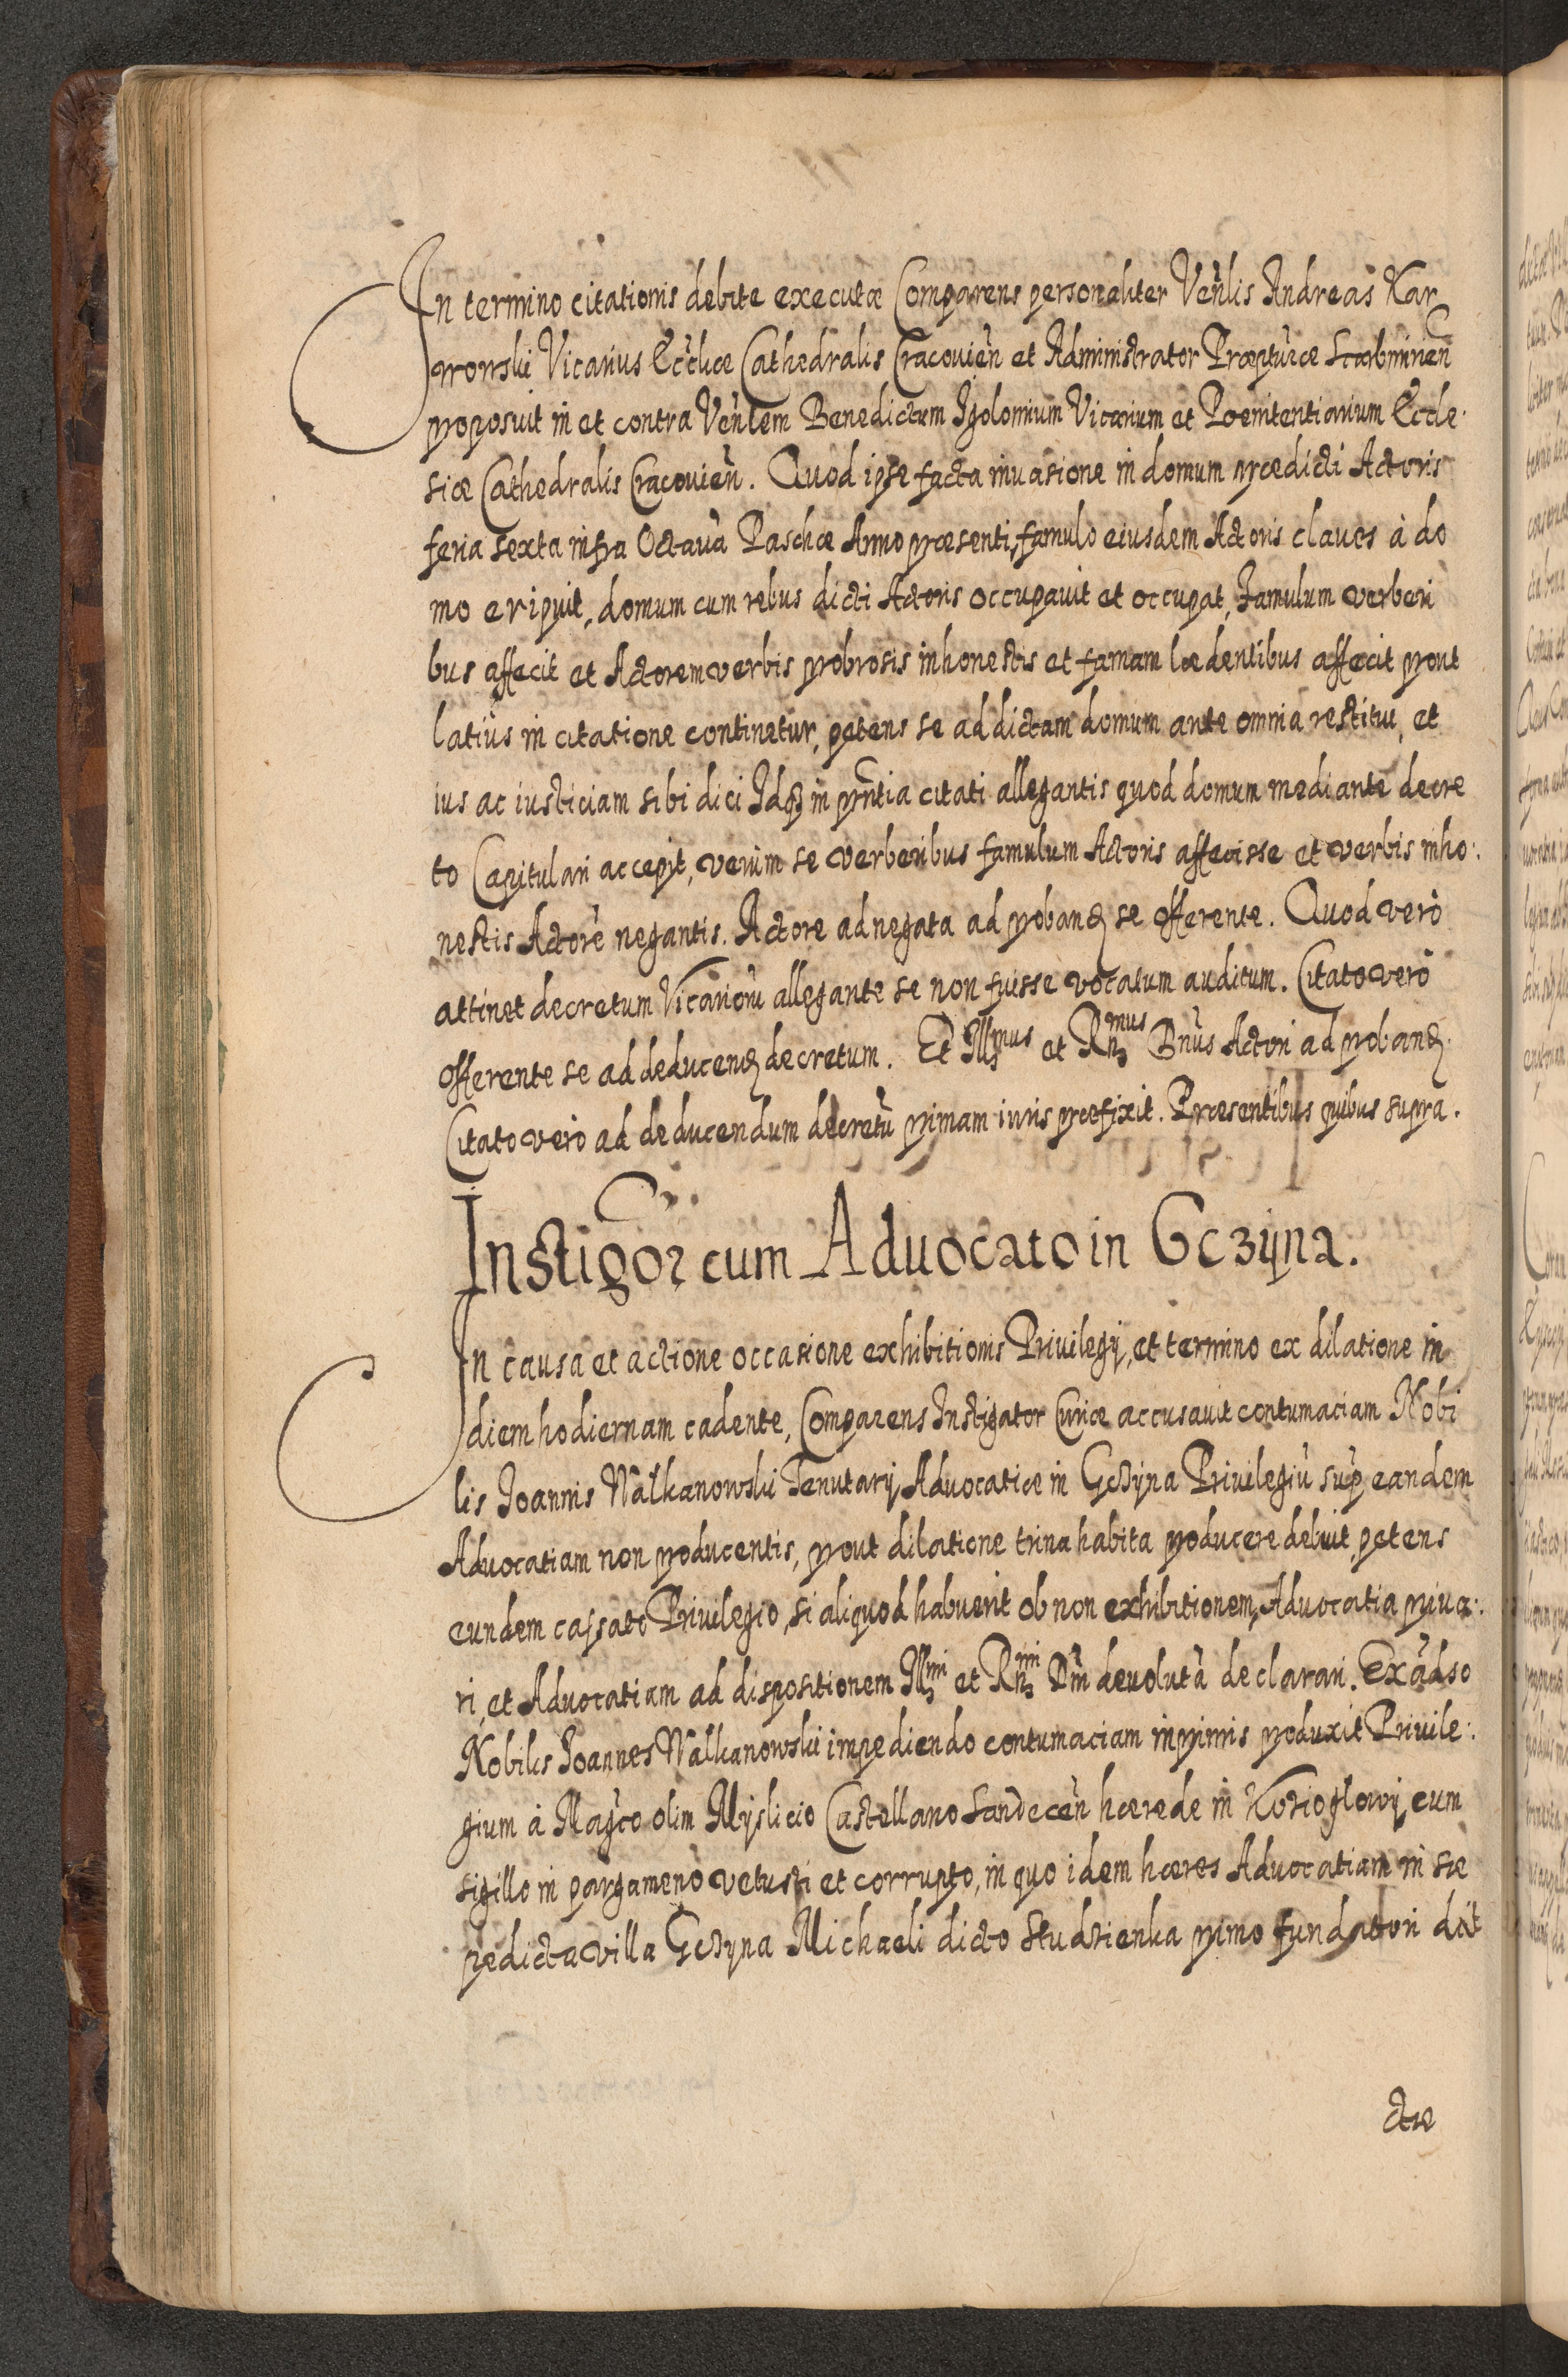 In termino citationis debite executæ Comparens personaliter Venlis Andreas Kar
wowski Vicarius Ecclicæ Cathedralis Cracovien et Administrator Præpturæ Scarbimirien
proposuit in et contra Venlem Benedictum Igolomium Vicarium et Poenitentiarium Eccle
siæ Cathedralis Cracovien. Quod ipse facta invasione in domum prædicti Actoris
feria sexta infra Octava Paschæ Anno præsenti, famulo eiusdem Actoris claves à do
mo eripuit, domum cum rebus dicti Actoris occupavit et occupat, Famulum verberi
bus affecit et Actorem verbis probrosis inhonestis et famam lædentibus affecit prout
latius in citatione continetur, petens se ad dictam domum ante omnia restitui, et
ius ac iusticiam sibi dici Idq in pntia citati allegantis quod domum mediante decre
to Capitulari accepit, verum se verberibus famulum Actoris affecisse et verbis inho:
nestis Actore negantis. Actore ad negata ad proband se offerente. Quod verò
attinet decretum Vicarioru allegante se non fuisse vocatum auditum. Citato verò
offerente se ad deducend decretum. Et Illmus et Rndmus Dnus Actori ad proband
Citato verò ad deducendum decretu primam iuris præfixit. Præsentibus quibus supra.
Instigor cum Advocato in Gczÿna.
In causa et actione occasione exhibitionis Privilegij, et termino ex dilatione in
diem hodiernam cadente, Comparens Instigator Curiæ accusavit contumaciam Nobi
lis Joannis Walkanowski Tenutarij Advocatiæ in Gczÿna Privilegiu sup eandem
Advocatiam non producentis, prout dilatione trina habita producere debuit, petens
eundem cassato Privilegio, si aliquod habuerit ob non exhibitionem, Advocatia priva:
ri, et Advocatiam ad dispositionem Illmi et Rndmi Dni devoluta declarari. Ex adso
Nobilis Joannes Walkanowski impediendo contumaciam inprimis produxit Privile:
gium à Magco olim Mÿslicio Castellano Sandecen hærede in Koziogłowÿ cum
sigillo in pargameno vetusti et corrupto, in quo idem hæres Advocatiam in sæ
pedicta villa Gczÿna Michaeli dicto Studzienka primo fundatori dat